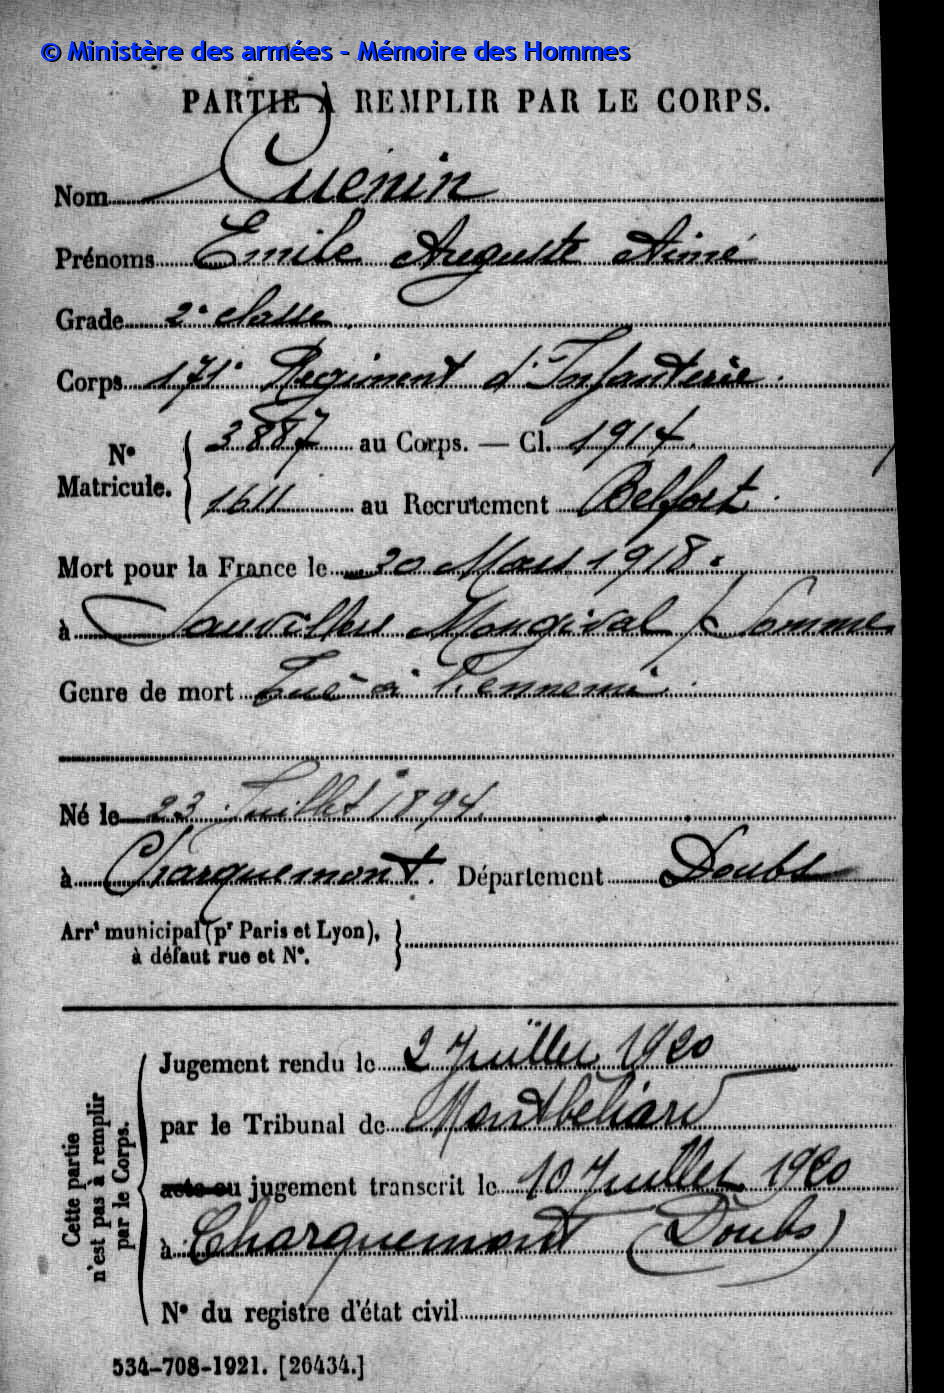 © Ministère des armées - Mémoire des Hommes
PARTIE À REMPLIR PAR LE CORPS.
Nom Cuenin
Prénoms Emile Auguste Aimé
Grade 2e classe
Corps 171e Régiment d'Infanterie
No Matricule. { 3887 au Corps. — Cl. 1914.
1611 au Recrutement Belfort
Mort pour la France le 30 Mars 1918
à Sauvillers Mongival / Somme
Genre de mort Tué à l'ennemi.
Né le 23 Juillet 1894.
à Charquemont. Département Doubs
Arrt municipal (pr Paris et Lyon), }
à défaut rue et No.
Cette partie n'est pas à remplir par le Corps.
Jugement rendu le 2 Juillet 1920
par le Tribunal de Montbéliard
acte ou jugement transcrit le 10 Juillet 1920
à Charquemont (Doubs)
No du registre d'état civil
534-708-1921. [26434.]